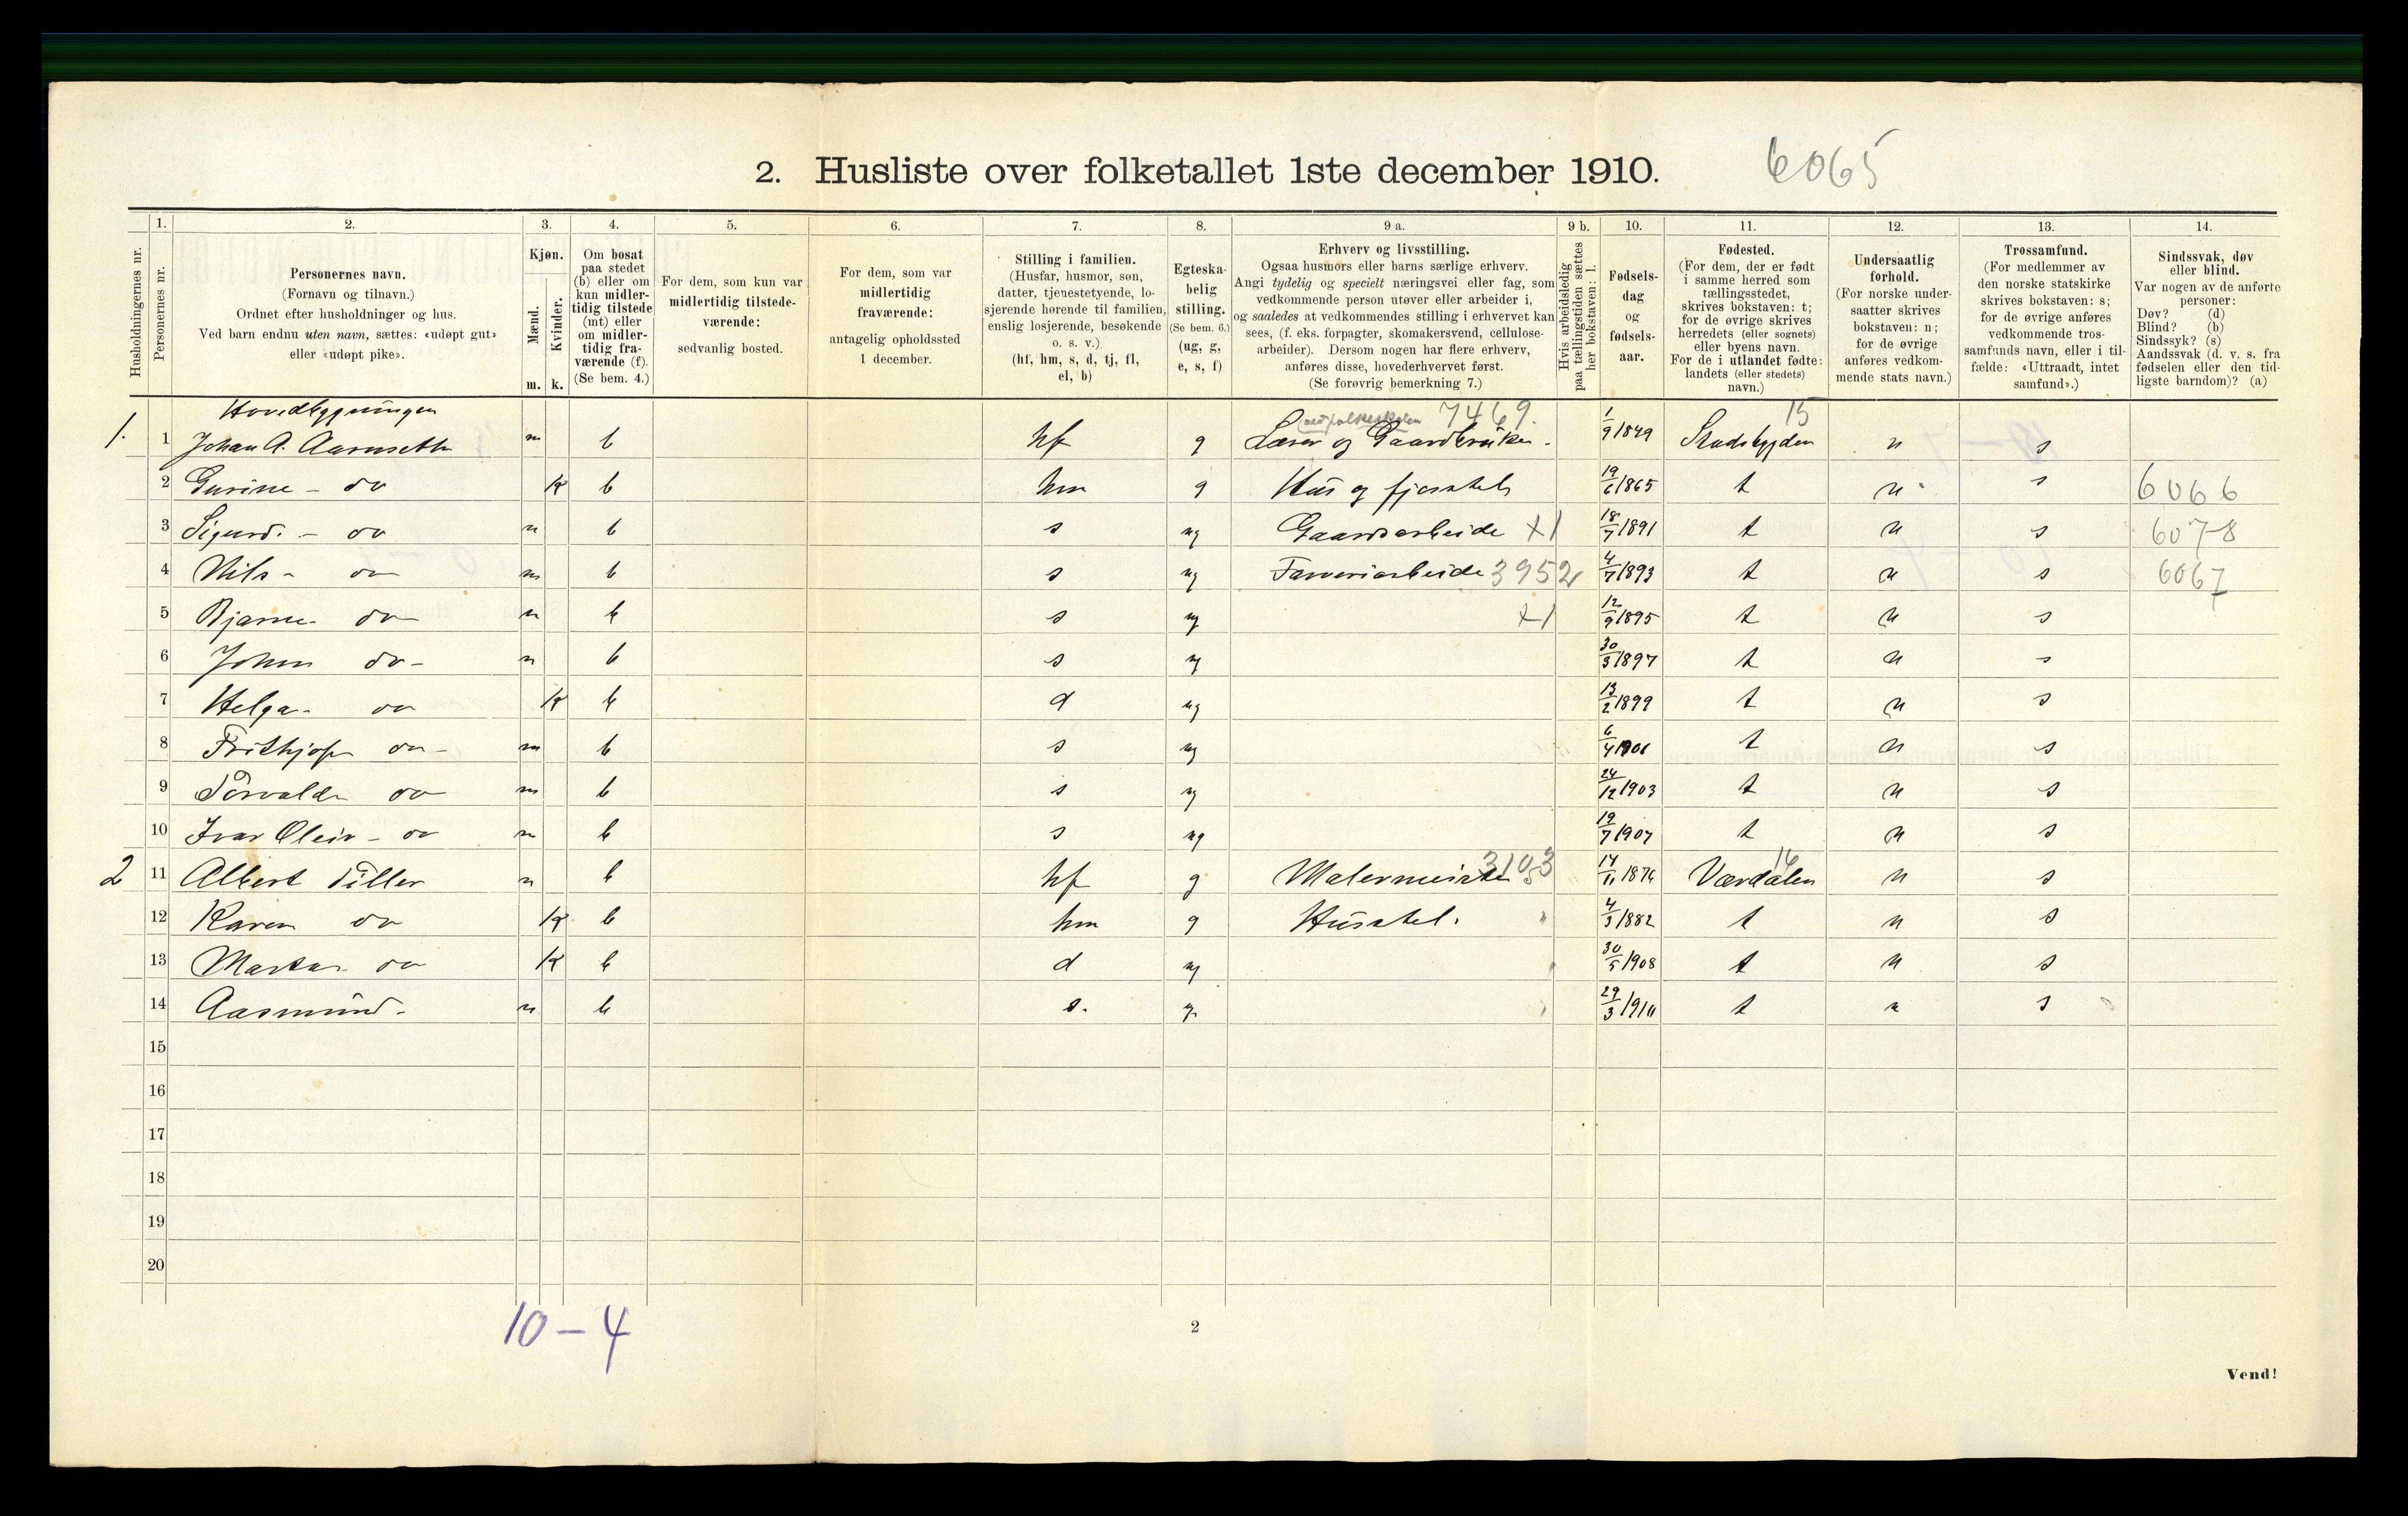 2. Husliste over folketallet 1ste december 1910. 6065
1. 2. 3. 4. 5. 6. 7. 8. 9 a. 9 b. 10. 11. 12. 13. 14.
Husholdningernes nr.
Personernes nr.
Personernes navn.
(Fornavn og tilnavn.)
Ordnet efter husholdninger og hus.
Ved barn endnu uten navn, sættes: «udøpt gut»
eller «udøpt pike».
Kjøn.
Mænd.
Kvinder.
m. k.
Om bosat
paa stedet
(b) eller om
kun midler-
tidig tilstede
(mt) eller
om midler-
tidig fra-
værende (f).
(Se bem. 4.)
For dem, som kun var
midlertidig tilstede-
værende:
sedvanlig bosted.
For dem, som var
midlertidig
fraværende:
antagelig opholdssted
1 december.
Stilling i familien.
(Husfar, husmor, søn,
datter, tjenestetyende, lo-
sjerende hørende til familien,
enslig losjerende, besøkende
o. s. v.)
(hf, hm, s, d, tj, fl,
el, b)
Egteska-
belig
stilling.
(Se bem. 6.)
(ug, g,
e, s, f)
Erhverv og livsstilling.
Ogsaa husmors eller barns særlige erhverv.
Angi tydelig og specielt næringsvei eller fag, som
vedkommende person utøver eller arbeider i,
og saaledes at vedkommendes stilling i erhvervet kan
sees, (f. eks. forpagter, skomakersvend, cellulose-
arbeider). Dersom nogen har flere erhverv,
anføres disse, hovederhvervet først.
(Se forøvrig bemerkning 7.)
Hvis arbeidsledig
paa tællingstiden sættes
her bokstaven: l.
Fødsels-
dag
og
fødsels-
aar.
Fødested.
(For dem, der er født
i samme herred som
tællingsstedet,
skrives bokstaven: t;
for de øvrige skrives
herredets (eller sognets)
eller byens navn.
For de i utlandet fødte:
landets (eller stedets)
navn.)
Undersaatlig
forhold.
(For norske under-
saatter skrives
bokstaven: n;
for de øvrige
anføres vedkom-
mende stats navn.)
Trossamfund.
(For medlemmer av
den norske statskirke
skrives bokstaven: s;
for de øvrige anføres
vedkommende tros-
samfunds navn, eller i til-
fælde: «Uttraadt, intet
samfund».)
Sindssvak, døv
eller blind.
Var nogen av de anførte
personer:
Døv? (d)
Blind? (b)
Sindssyk? (s)
Aandssvak (d. v. s. fra
fødselen eller den tid-
ligste barndom)? (a)
Hovedbygningen ved folkeskolen 7469. 15
1. 1 Johan A. Aarnseth m b hf g Lærer og Gaardbruker. 1/9 1849 Stadsbygden n s
2 Gurine - do k b hm g Hus og fjøsstel 19/6 1865 t n s 6066
3 Sigurd. - do m b s ug Gaardsarbeide X1 18/7 1891 t n s 607-8
4 Nils - do m b s ug Farveriarbeide 3952 4/7 1893 t n s 6067
5 Bjarne - do m b s ug X1 12/9 1895 t n s
6 Johan do - m b s ug 30/3 1897 t n s
7 Helga - do k b d ug 13/2 1899 t n s
8 Frithjof do - m b s ug 6/4 1901 t n s
9 Torvald - do m b s ug 24/12 1903 t n s
10 Ivar Oleiv - do m b s ug 19/7 1907 t n s
2 11 Albert Tiller m b hf g Malermester 3103 14/11 1876 Værdalen 16 n s
12 Karen do k b hm g Husstel. 4/3 1882 t n s
13 Marta - do k b d ug 30/5 1908 t n s
14 Aasmund - m b s. ug 29/3 1910 t n s
15
16
17
18
19
20
10 - 4
2
Vend!